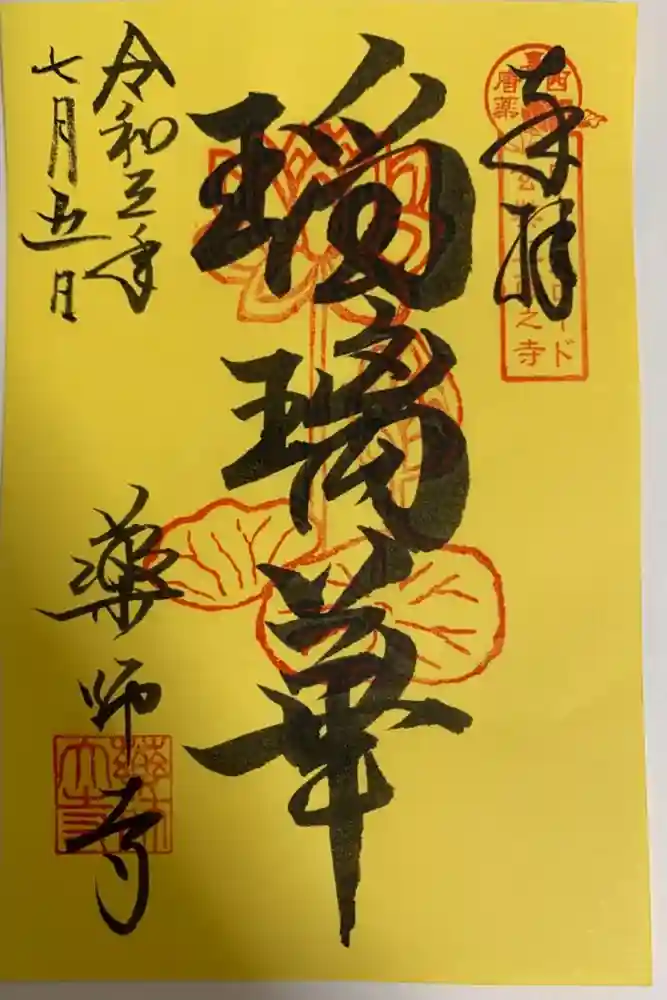 奉拝
瑠璃華
令和三年
七月五日
薬師寺
ロード
之寺